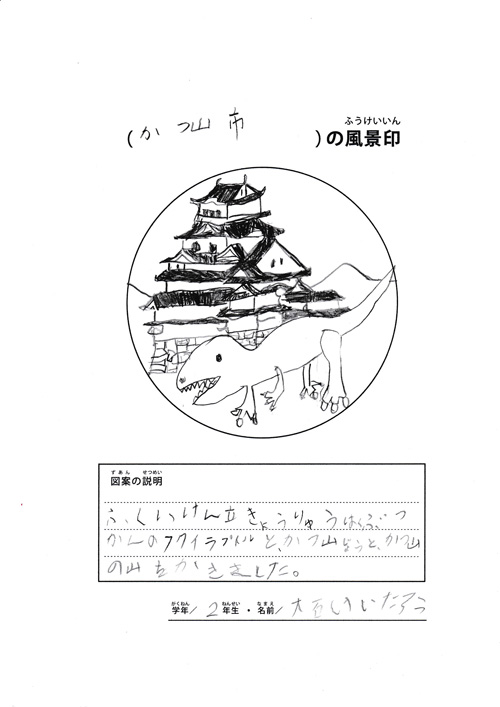 (かつ山市)の風景印
ふうけいいん
図案の説明
ずあん せつめい
ふくいけん立きょうりゅうはくぶつ
かんのフクイラプトルと、かつ山じょうと、かつ山
の山をかきました。
学年/2年生・名前/
がくねん ねんせい なまえ